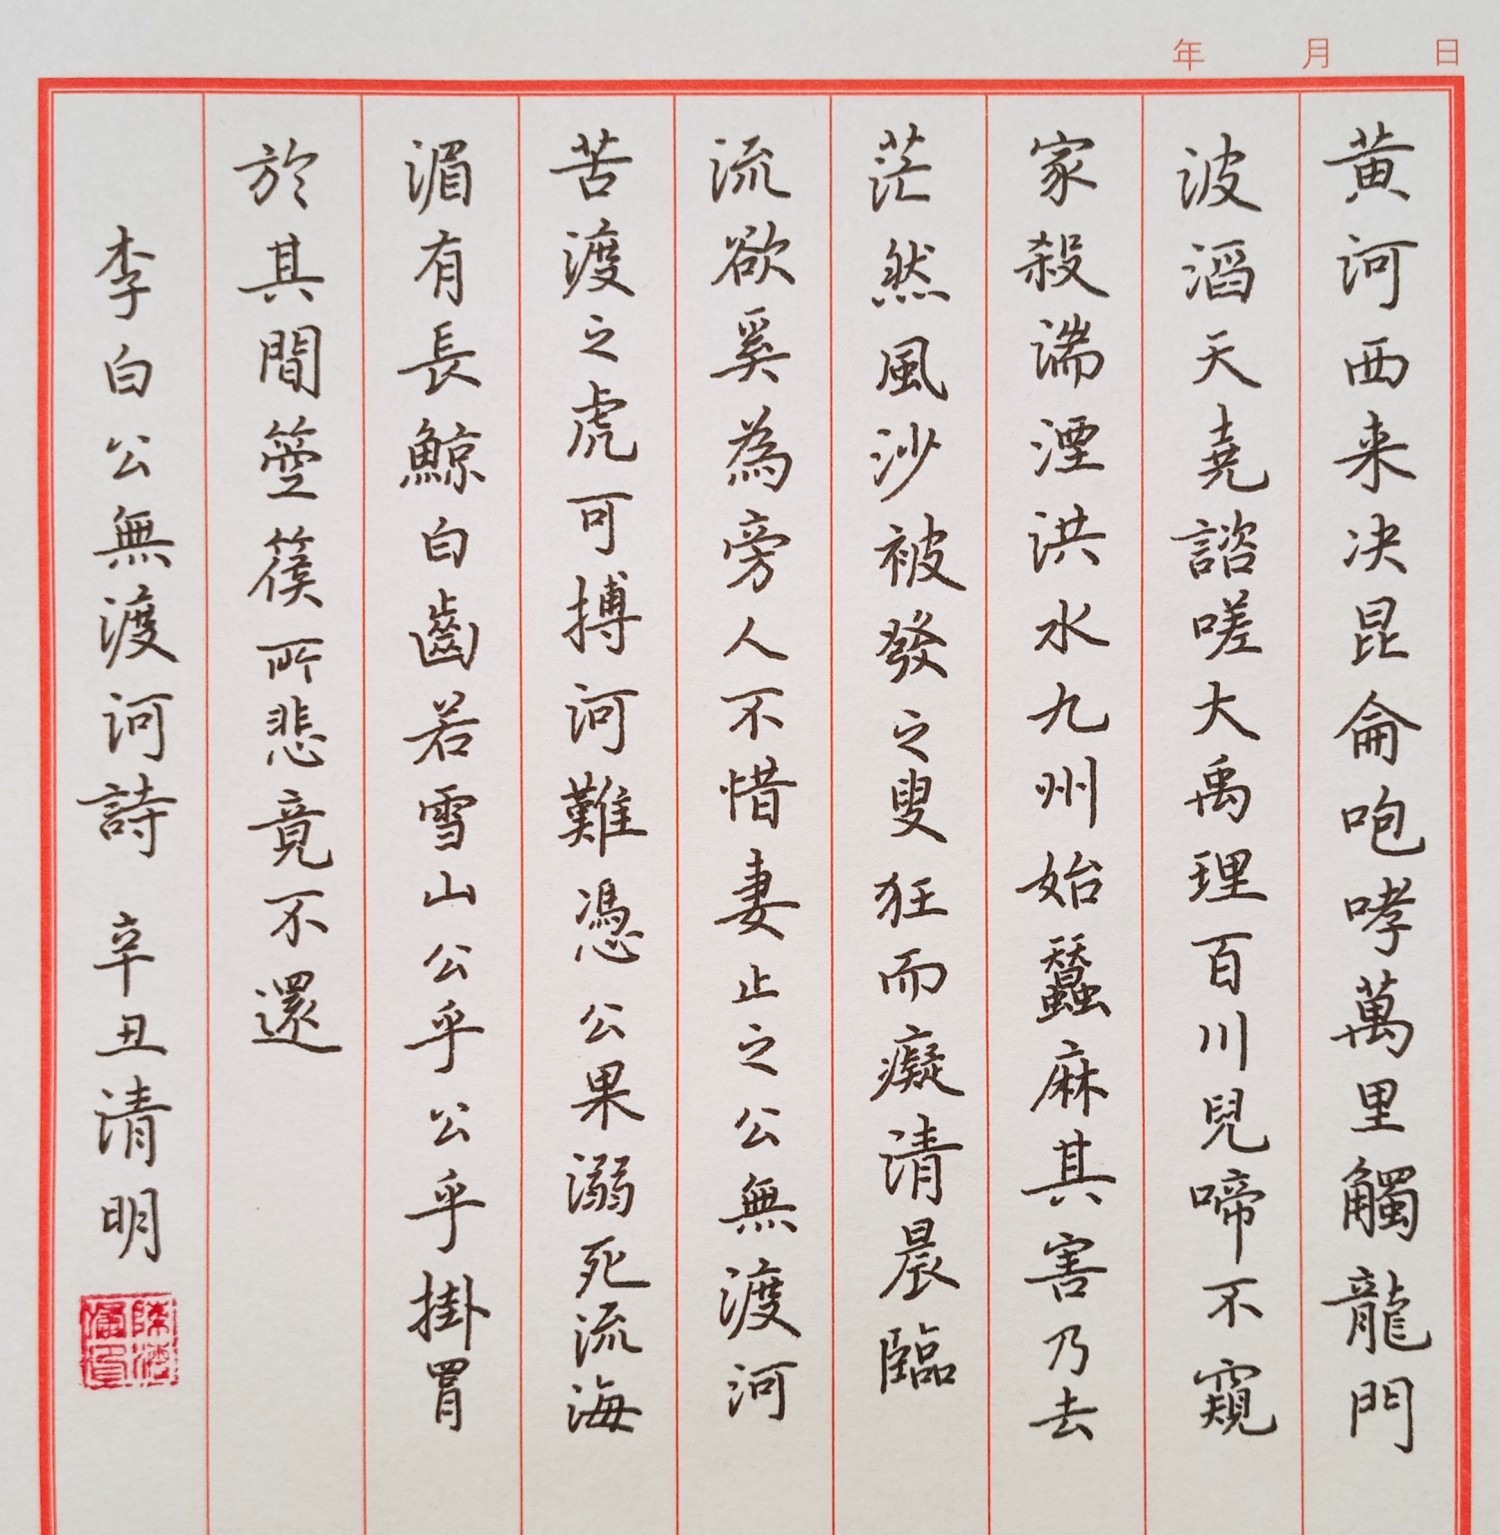 年 月 日
黄河西来决昆侖咆哮萬里觸龍門
波滔天堯諮嗟大禹理百川兒啼不窺
家殺湍湮洪水九州始蠶麻其害乃去
茫然風沙被發之叟狂而癡清晨臨
流欲奚為旁人不惜妻止之公無渡河
苦渡之虎可搏河難憑公果溺死流海
湄有長鯨白齒若雪山公乎公乎掛罥
於其間箜篌所悲竟不還
李白公無渡河詩 辛丑清明